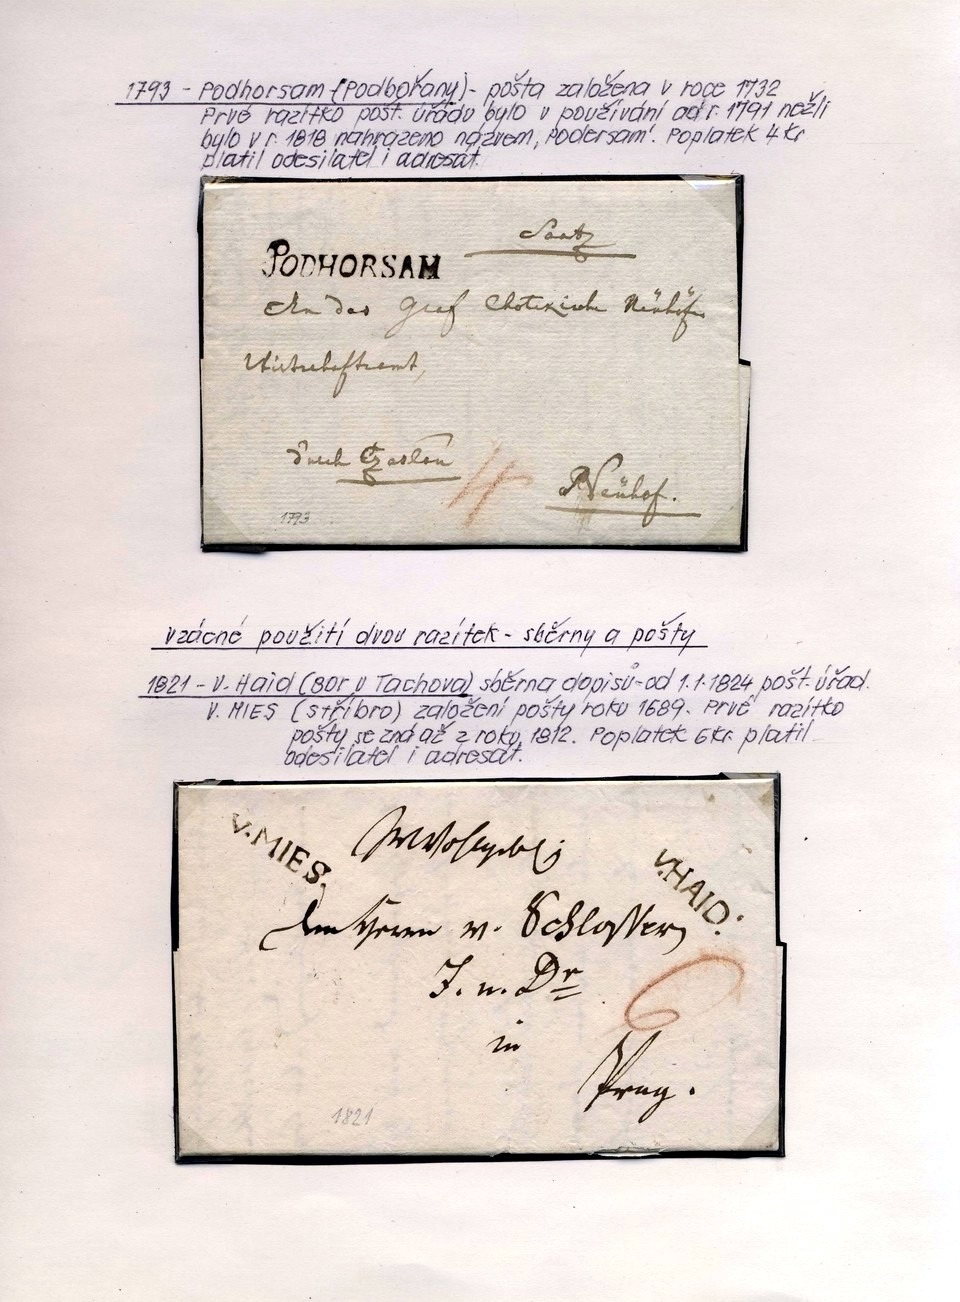 1793 - Podhorsam (Podbořany) - pošta založena v roce 1732
Prvé razítko pošt. úřadu bylo v používání od r. 1791 nežli
bylo v r. 1818 nahrazeno názvem „Podersam“. Poplatek 4 kr
platil odesilatel i adresát.
Saatz
PODHORSAM
An das Graf Chotekische Neühöfer
Wirtschaftsamt,
durch Czaslau
4
Neühof.
1793
Vzácné použití dvou razítek - sběrny a pošty
1821 - V. Haid (Bor u Tachova) sběrna dopisů - od 1.1.1824 pošt. úřad.
V. MIES (Stříbro) založení pošty roku 1689. Prvé razítko
pošty se zná až z roku 1812. Poplatek 6 kr. platil
odesilatel i adresát.
V. MIES.
V. HAID.
Herrn v. Schlosser
J. u. Dr
6
in
Prag.
1821